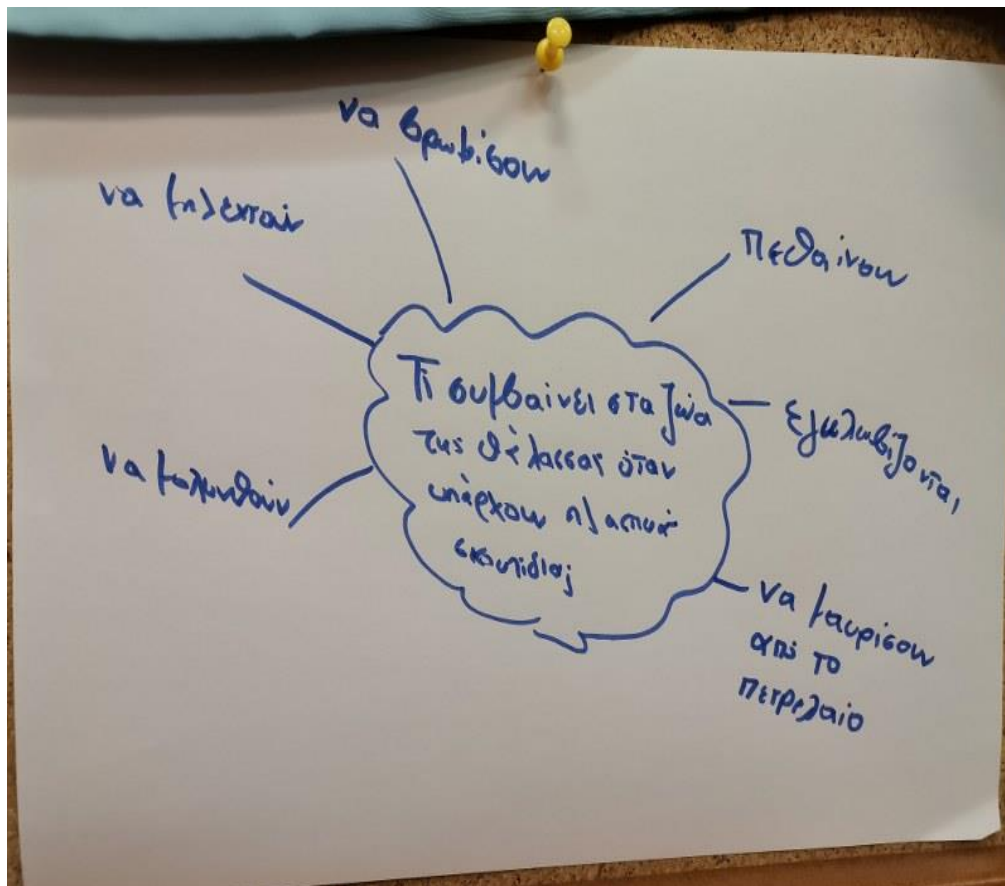 να βρωμίσουν
να μπλεχτούν
πεθαίνουν
Τι συμβαίνει στα ζώα
της θάλασσας όταν
υπάρχουν πλαστικά
σκουπίδια;
εγκλωβίζονται
να μολυνθούν
να μαυρίσουν
από το
πετρέλαιο